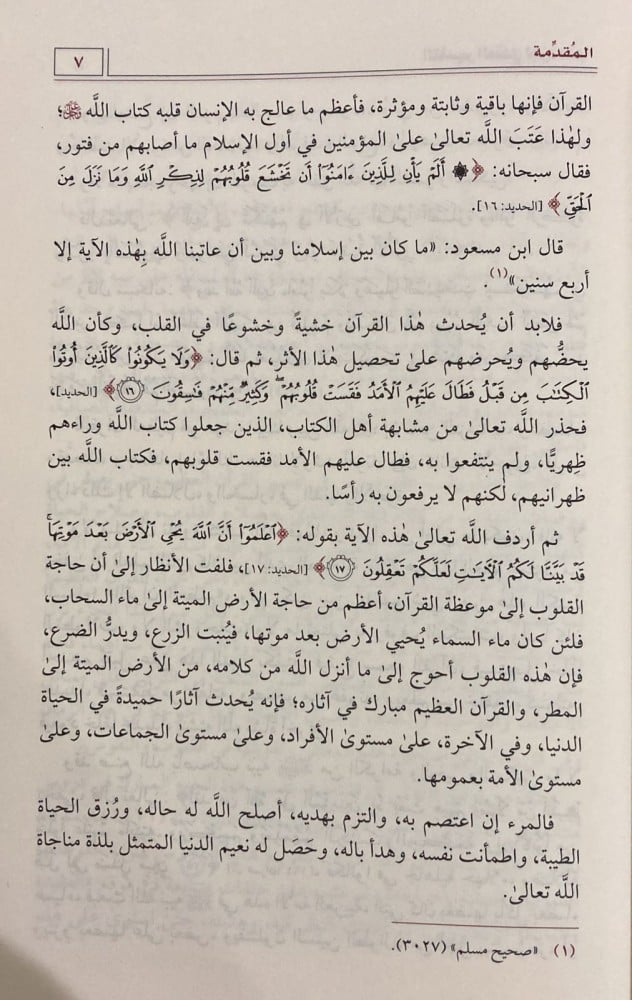 المُقدِّمة
٧
القرآن فإنها باقية وثابتة ومؤثرة، فأعظم ما عالج به الإنسان قلبه كتاب اللَّه ﷻ؛
ولهٰذا عَتَبَ اللَّه تعالىٰ علىٰ المؤمنين في أول الإسلام ما أصابهم من فتور،
فقال سبحانه: ﴿۞ أَلَمْ يَأْنِ لِلَّذِينَ ءَامَنُوٓا۟ أَن تَخْشَعَ قُلُوبُهُمْ لِذِكْرِ ٱللَّهِ وَمَا نَزَلَ مِنَ
ٱلْحَقِّ﴾ [الحديد: ١٦].
قال ابن مسعود: «ما كان بين إسلامنا وبين أن عاتبنا اللَّه بِهٰذه الآية إلا
أربع سنين»(١).
فلابد أن يُحدث هٰذا القرآن خشيةً وخشوعًا في القلب، وكأن اللَّه
يحضُّهم ويُحرضهم علىٰ تحصيل هٰذا الأثر، ثم قال: ﴿وَلَا يَكُونُوا۟ كَٱلَّذِينَ أُوتُوا۟
ٱلْكِتَٰبَ مِن قَبْلُ فَطَالَ عَلَيْهِمُ ٱلْأَمَدُ فَقَسَتْ قُلُوبُهُمْ ۖ وَكَثِيرٌ مِّنْهُمْ فَٰسِقُونَ ١٦﴾ [الحديد]،
فحذر اللَّه تعالىٰ من مشابهة أهل الكتاب، الذين جعلوا كتاب اللَّه وراءهم
ظِهريًّا، ولم ينتفعوا به، فطال عليهم الأمد فقست قلوبهم، فكتاب اللَّه بين
ظهرانيهم، لٰكنهم لا يرفعون به رأسًا.
ثم أردف اللَّه تعالىٰ هٰذه الآية بقوله: ﴿ٱعْلَمُوٓا۟ أَنَّ ٱللَّهَ يُحْىِ ٱلْأَرْضَ بَعْدَ مَوْتِهَا ۚ
قَدْ بَيَّنَّا لَكُمُ ٱلْءَايَٰتِ لَعَلَّكُمْ تَعْقِلُونَ ١٧﴾ [الحديد: ١٧]، فلفت الأنظار إلىٰ أن حاجة
القلوب إلىٰ موعظة القرآن، أعظم من حاجة الأرض الميتة إلىٰ ماء السحاب،
فلئن كان ماء السماء يُحيي الأرض بعد موتها، فيُنبت الزرع، ويدرُّ الضرع،
فإن هٰذه القلوب أحوج إلىٰ ما أنزل اللَّه من كلامه، من الأرض الميتة إلىٰ
المطر، والقرآن العظيم مبارك في آثاره؛ فإنه يُحدث آثارًا حميدةً في الحياة
الدنيا، وفي الآخرة، علىٰ مستوىٰ الأفراد، وعلىٰ مستوىٰ الجماعات، وعلىٰ
مستوىٰ الأمة بعمومها.
فالمرء إن اعتصم به، والتزم بهديه، أصلح اللَّه له حاله، ورُزق الحياة
الطيبة، واطمأنت نفسه، وهدأ باله، وحَصَل له نعيم الدنيا المتمثل بلذة مناجاة
اللَّه تعالىٰ.
(١) «صحيح مسلم» (٣٠٢٧).